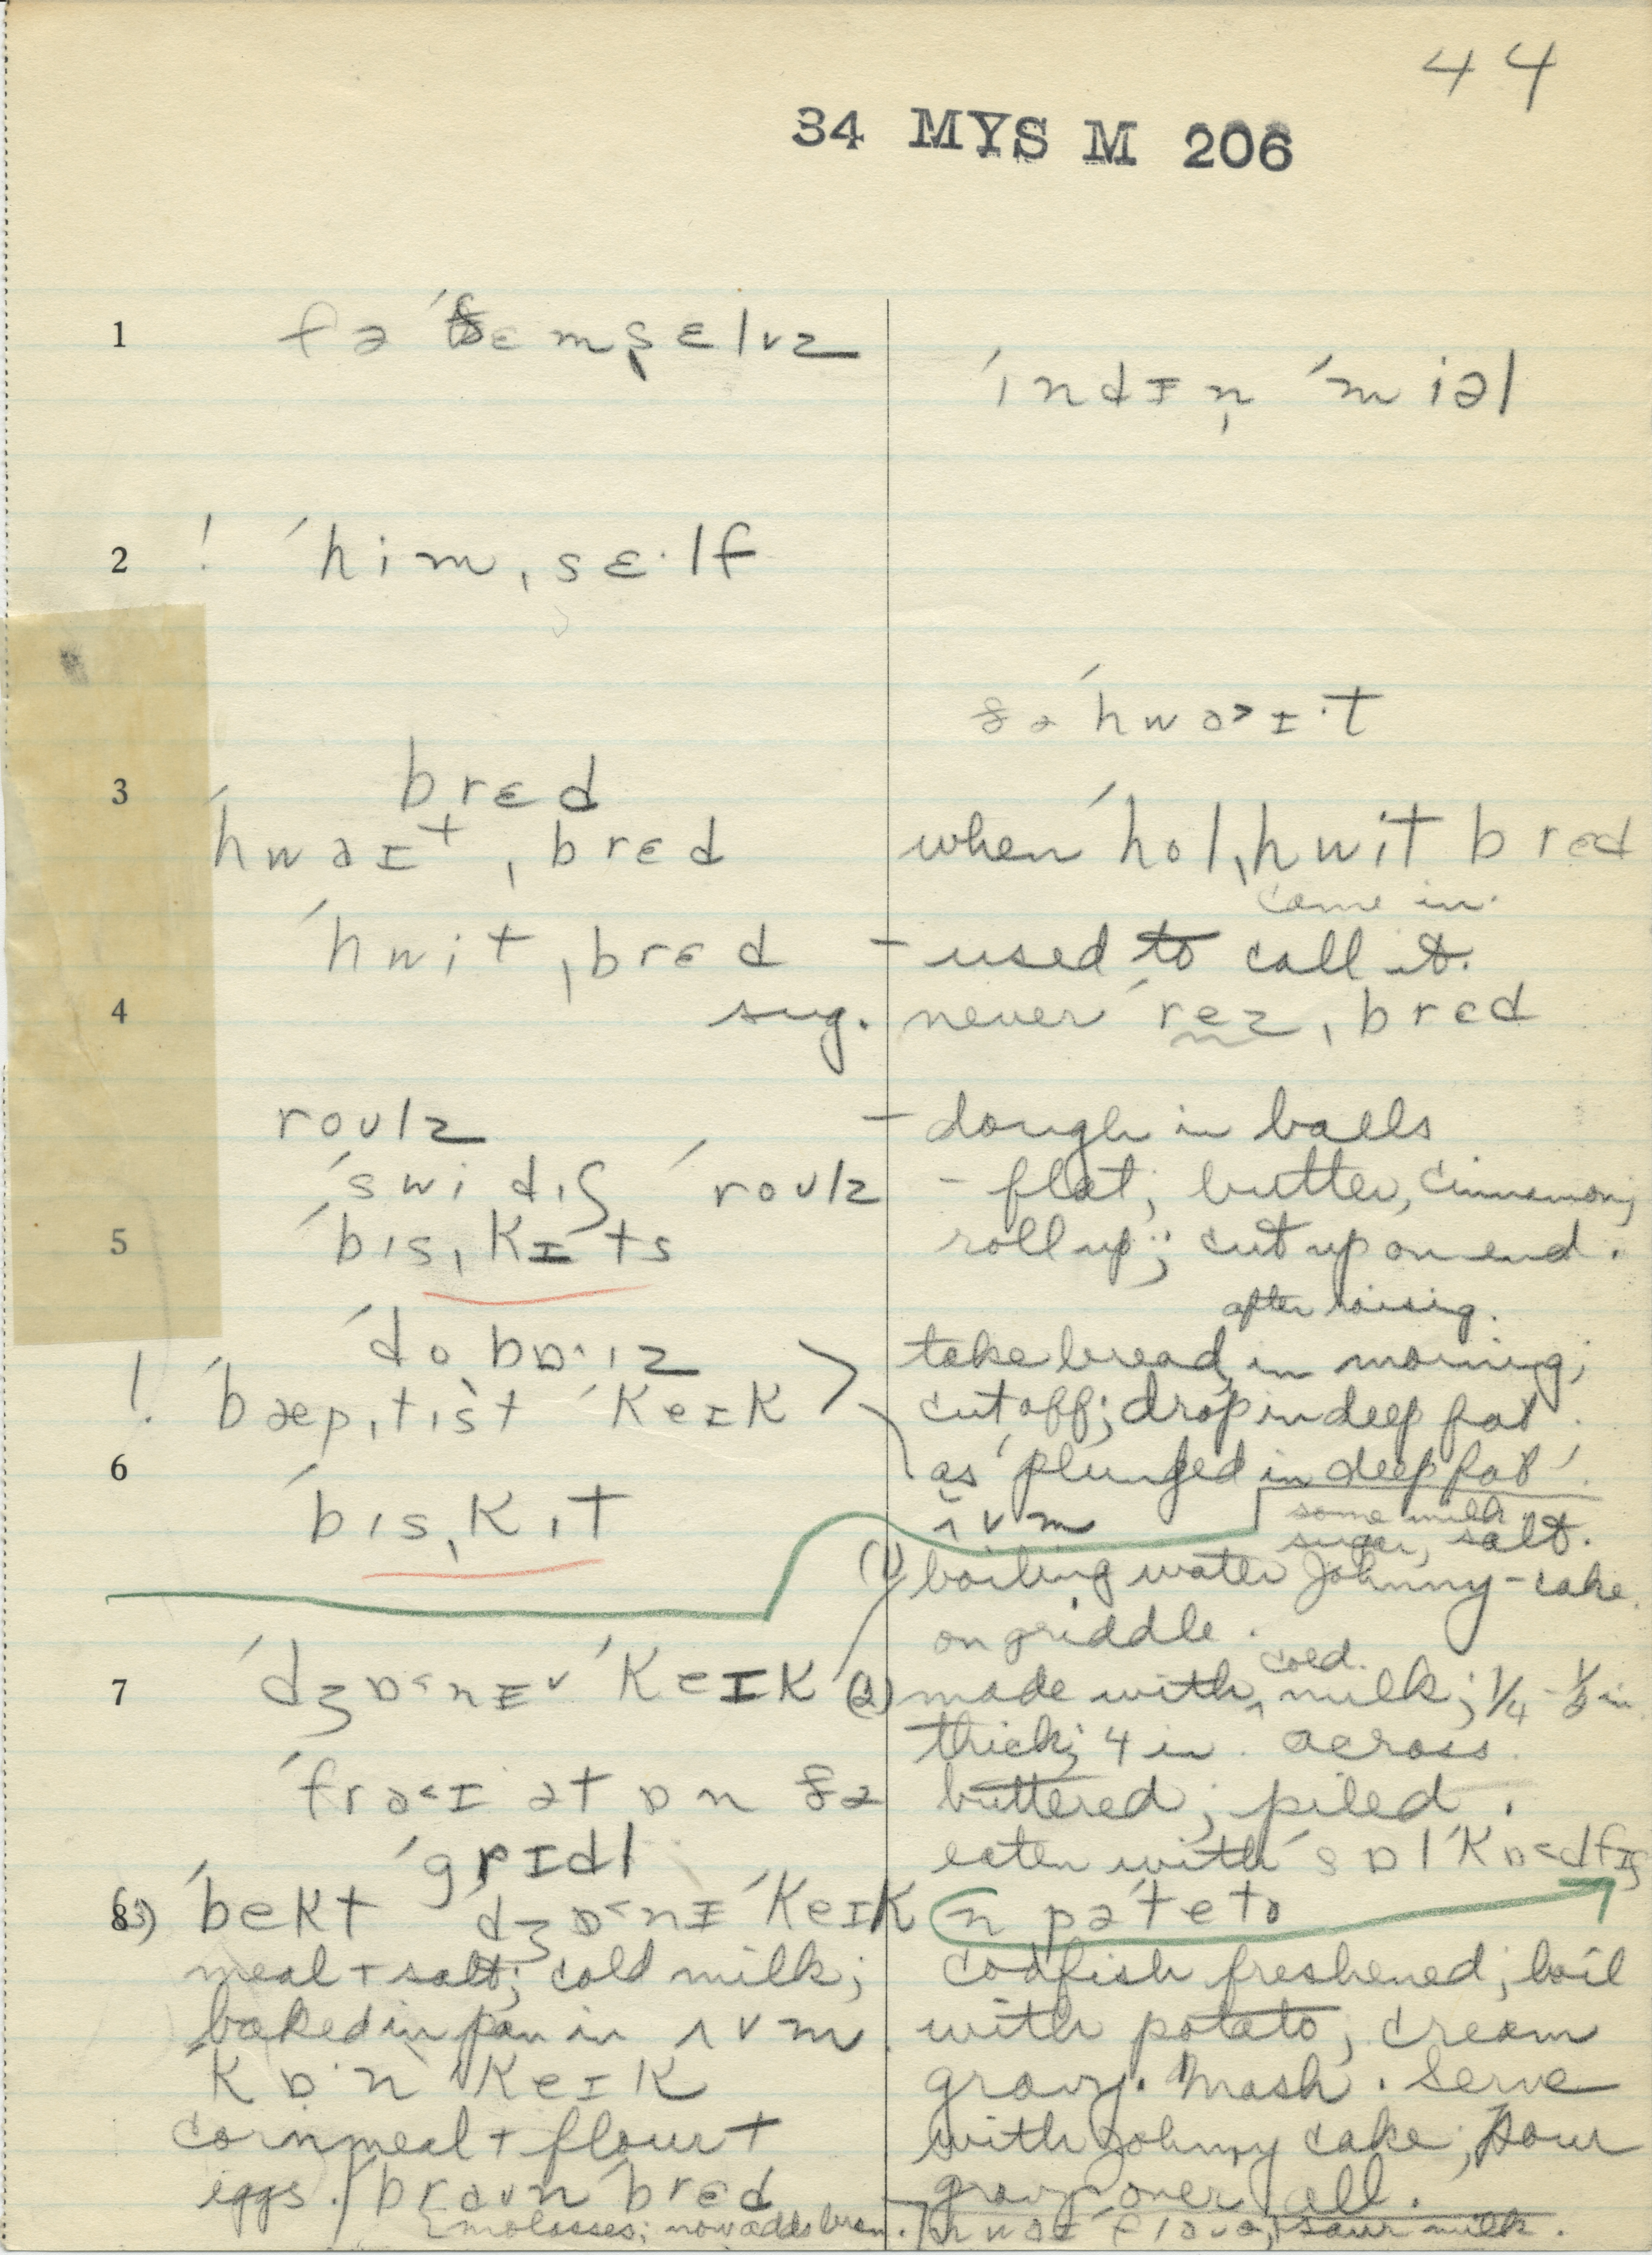 44
34 MYS M 206
1 fə ˈðɛmˌsɛlvz
ˈindɪn̩ ˈmiəl
2 ! ˈhimˌsɛ·lf
ðə ˈhwə>ɪ·t
3 brɛd
ˈhwəɪtˌbrɛd when ˈholˌhwit brɛd
came in.
ˈhwitˌbrɛd - used to call it.
4 sug. never ˈrezˌbrɛd
roʊlz - dough in balls
ˈswidɪʃ ˈroʊlz - flat; butter, cinnamon;
5 ˈbɪsˌkɪts roll up; cut up on end.
after raising.
ˈdo bɒ·ɪz take bread, in morning;
! ˈbæpˌtɪst ˈkeɪk cut off; drop in deep fat.
6 as 'plunged in deep fat'.
ˈbɪsˌkɪt ʌvm
some milk
sugar, salt.
(1) boiling water Johnny-cake
on griddle.
cold
7 ˈdʒɒ<nɪ ˈkeɪk (2) made with milk; 1/4 - 1/2 in
thick; 4 in. across.
ˈfrə<ɪ ət ɒn ðə buttered; piled.
ˈgrɪdl eaten with ˈsɒlˈkɒ<dfɪʃ
8 (3) ˈbekt ˈdʒɒ<nɪ ˈkeɪk n pəˈteto
meal + salt; cold milk; codfish freshened; boil
baked in pan in ʌvm. with potato; cream
ˈkɒ·n ˈkeɪk gravy. Mash. Serve
cornmeal + flour + with Johnny cake; pour
eggs. ˈbraʊn ˈbrɛd gravy over all.
molasses; now adds bran. sour milk.